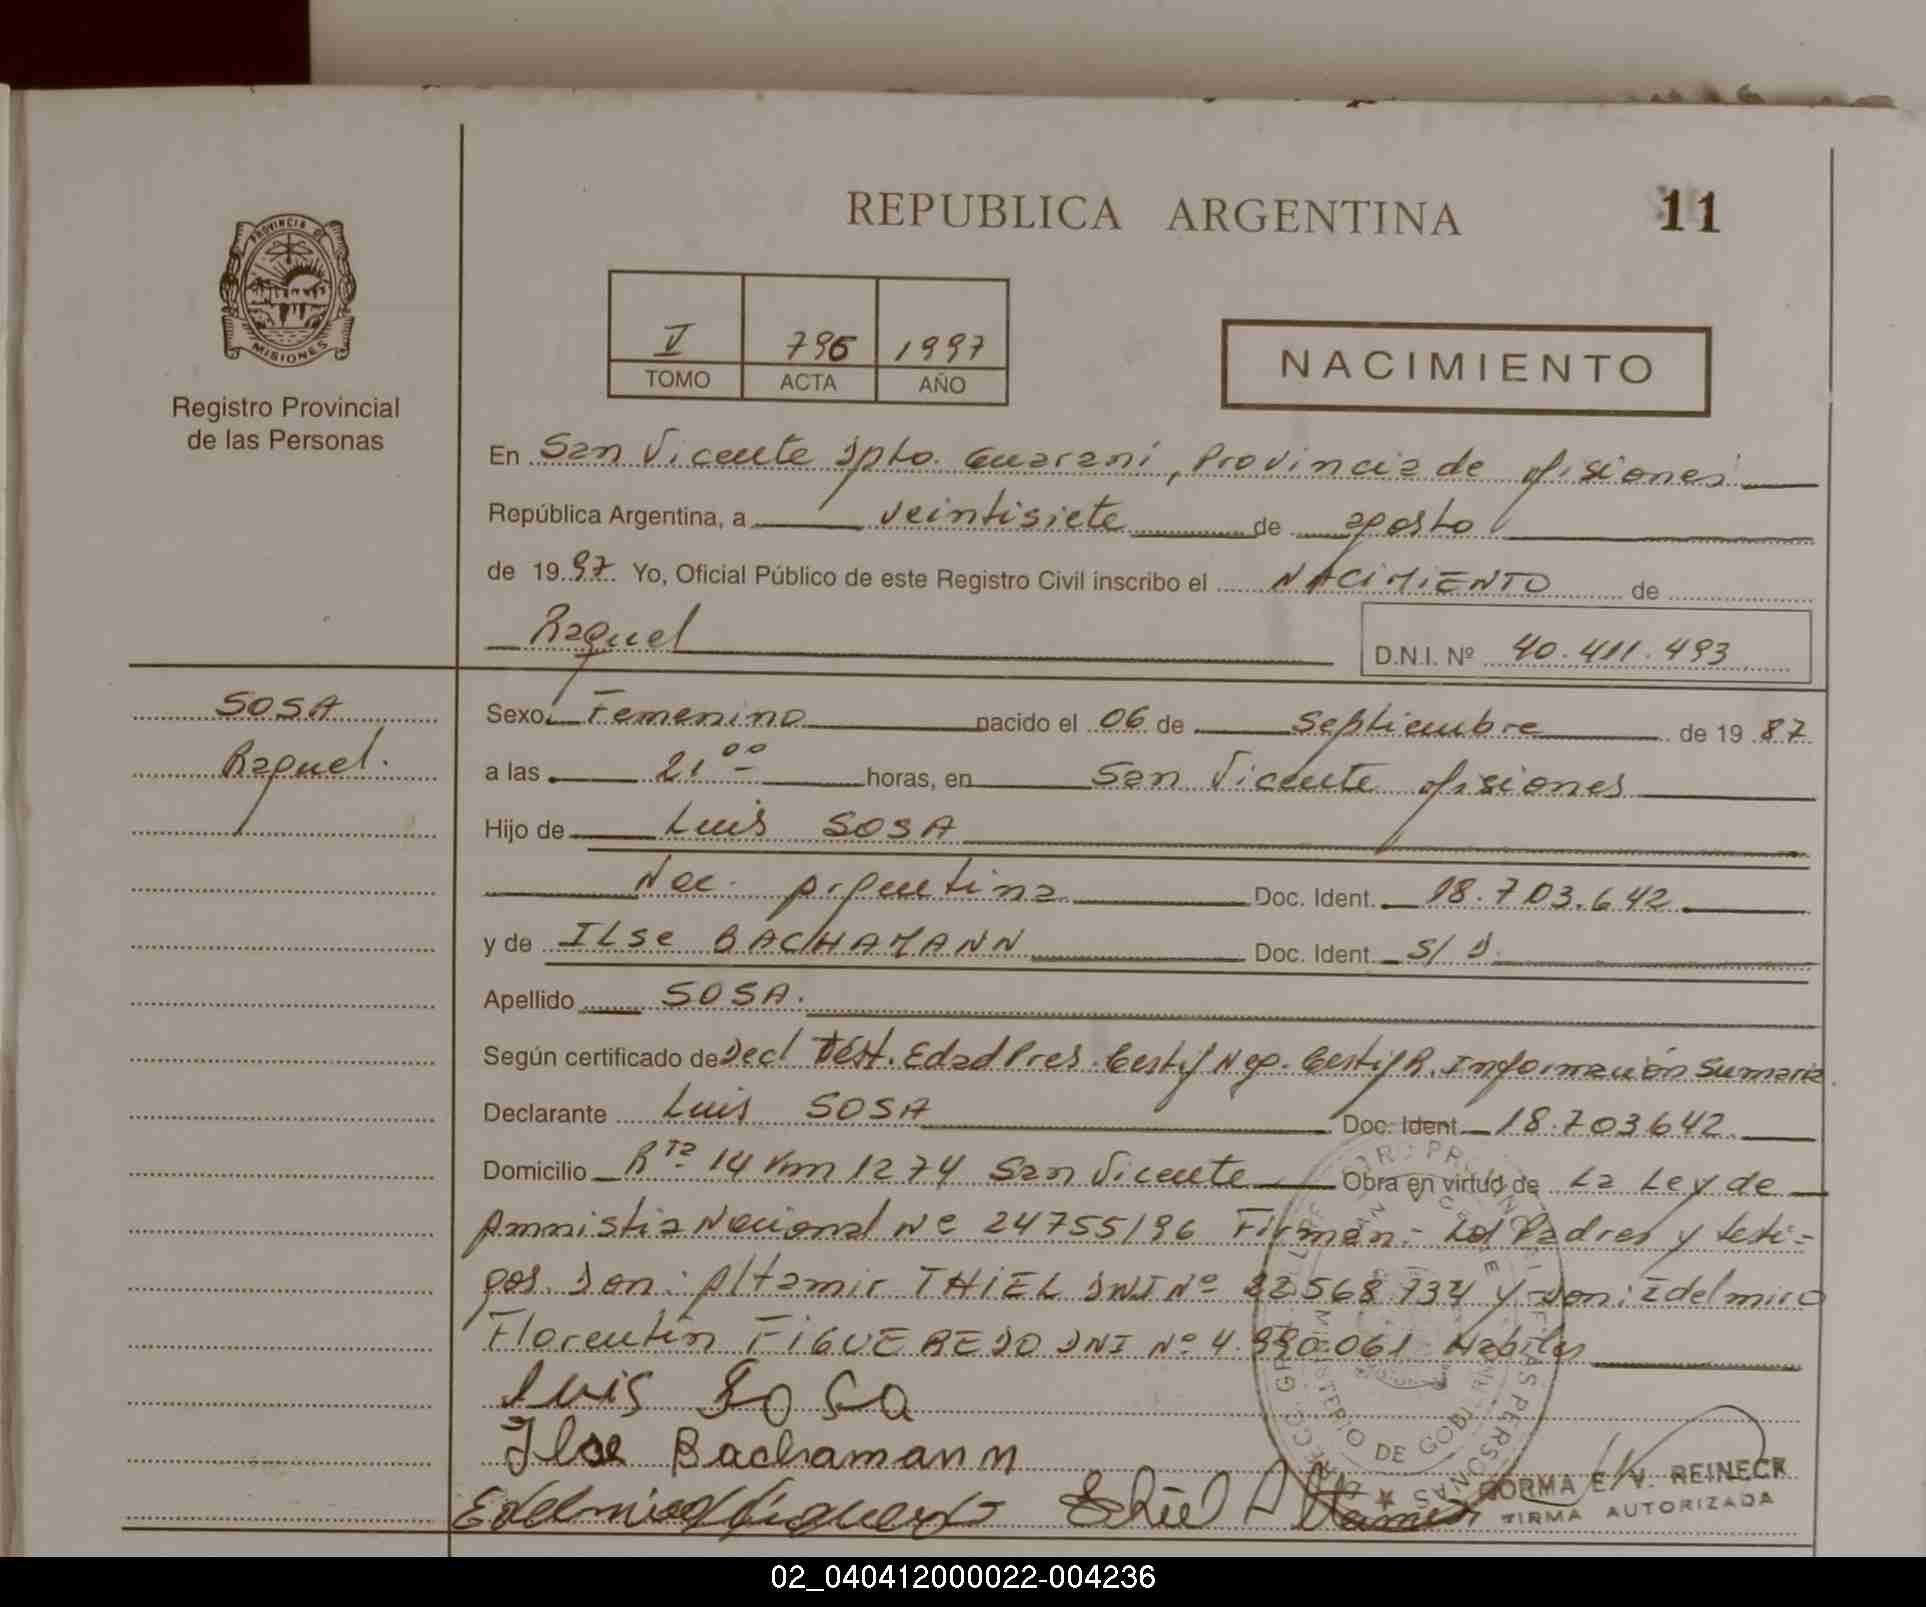 REPUBLICA ARGENTINA
11
PROVINCIA DE
MISIONES
Registro Provincial
de las Personas
V 796 1997
TOMO ACTA AÑO
NACIMIENTO
En San Vicente Dpto. Guaraní, Provincia de Misiones
República Argentina, a veintisiete de agosto
de 19 97 Yo, Oficial Público de este Registro Civil inscribo el NACIMIENTO de
Raquel
D.N.I. Nº 40.411.493
SOSA
Raquel.
Sexo Femenino nacido el 06 de Septiembre de 19 87
a las 21 00 horas, en San Vicente Misiones
Hijo de Luis SOSA
Nac. Argentina Doc. Ident. 18.703.642
y de ILSe BACHAMANN Doc. Ident. S/D.
Apellido SOSA.
Según certificado de Decl Test. Edad Pres. Certif Neg. Certif R. Información Sumaria.
Declarante Luis SOSA Doc. Ident. 18.703642
Domicilio Rta 14 Km 1274 San Vicente Obra en virtud de La Ley de
Amnistia Nacional Nº 24755/96 Firman:- Los Padres y testi-
gos. Don: Altamir THIEL DNI Nº 22568734 y Don: Edelmiro
Florentín FIGUEREDO DNI Nº 4.990.061 Habiles
Luis Sosa
Ilse Bachamann
MINISTERIO DE GOBIERNO
NORMA E. V. REINECK
FIRMA AUTORIZADA
02_040412000022-004236